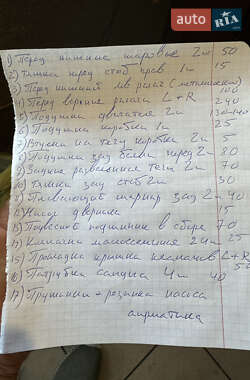 AUTO RIA
1) Перед нижние шаровые 2шт 50
2) Тяжка перед стаб прав 1шт 15
3) Перед нижний рычаг (метал
100
4) Перед верхние рычаги L+R 240
5) Подушки двигателя 2шт
6) Подушка коробки 1шт 25
7) Втулки на тягу коробки 2шт 5
8) Подушки зад балки перед 2шт 80
9) Задние развальные тяги 2шт 70
10) Тяжки зад стаб 2шт 30
Плавающий шарнир зад 2шт 40
дворники 15
13) Подвесной подшипник в сборе 70
14) Клапана 24шт 25
15) Прокладка крышки клапанов L+R
16) Патрубки сапуна 4шт 40
17) Пружинки + резинка насоса